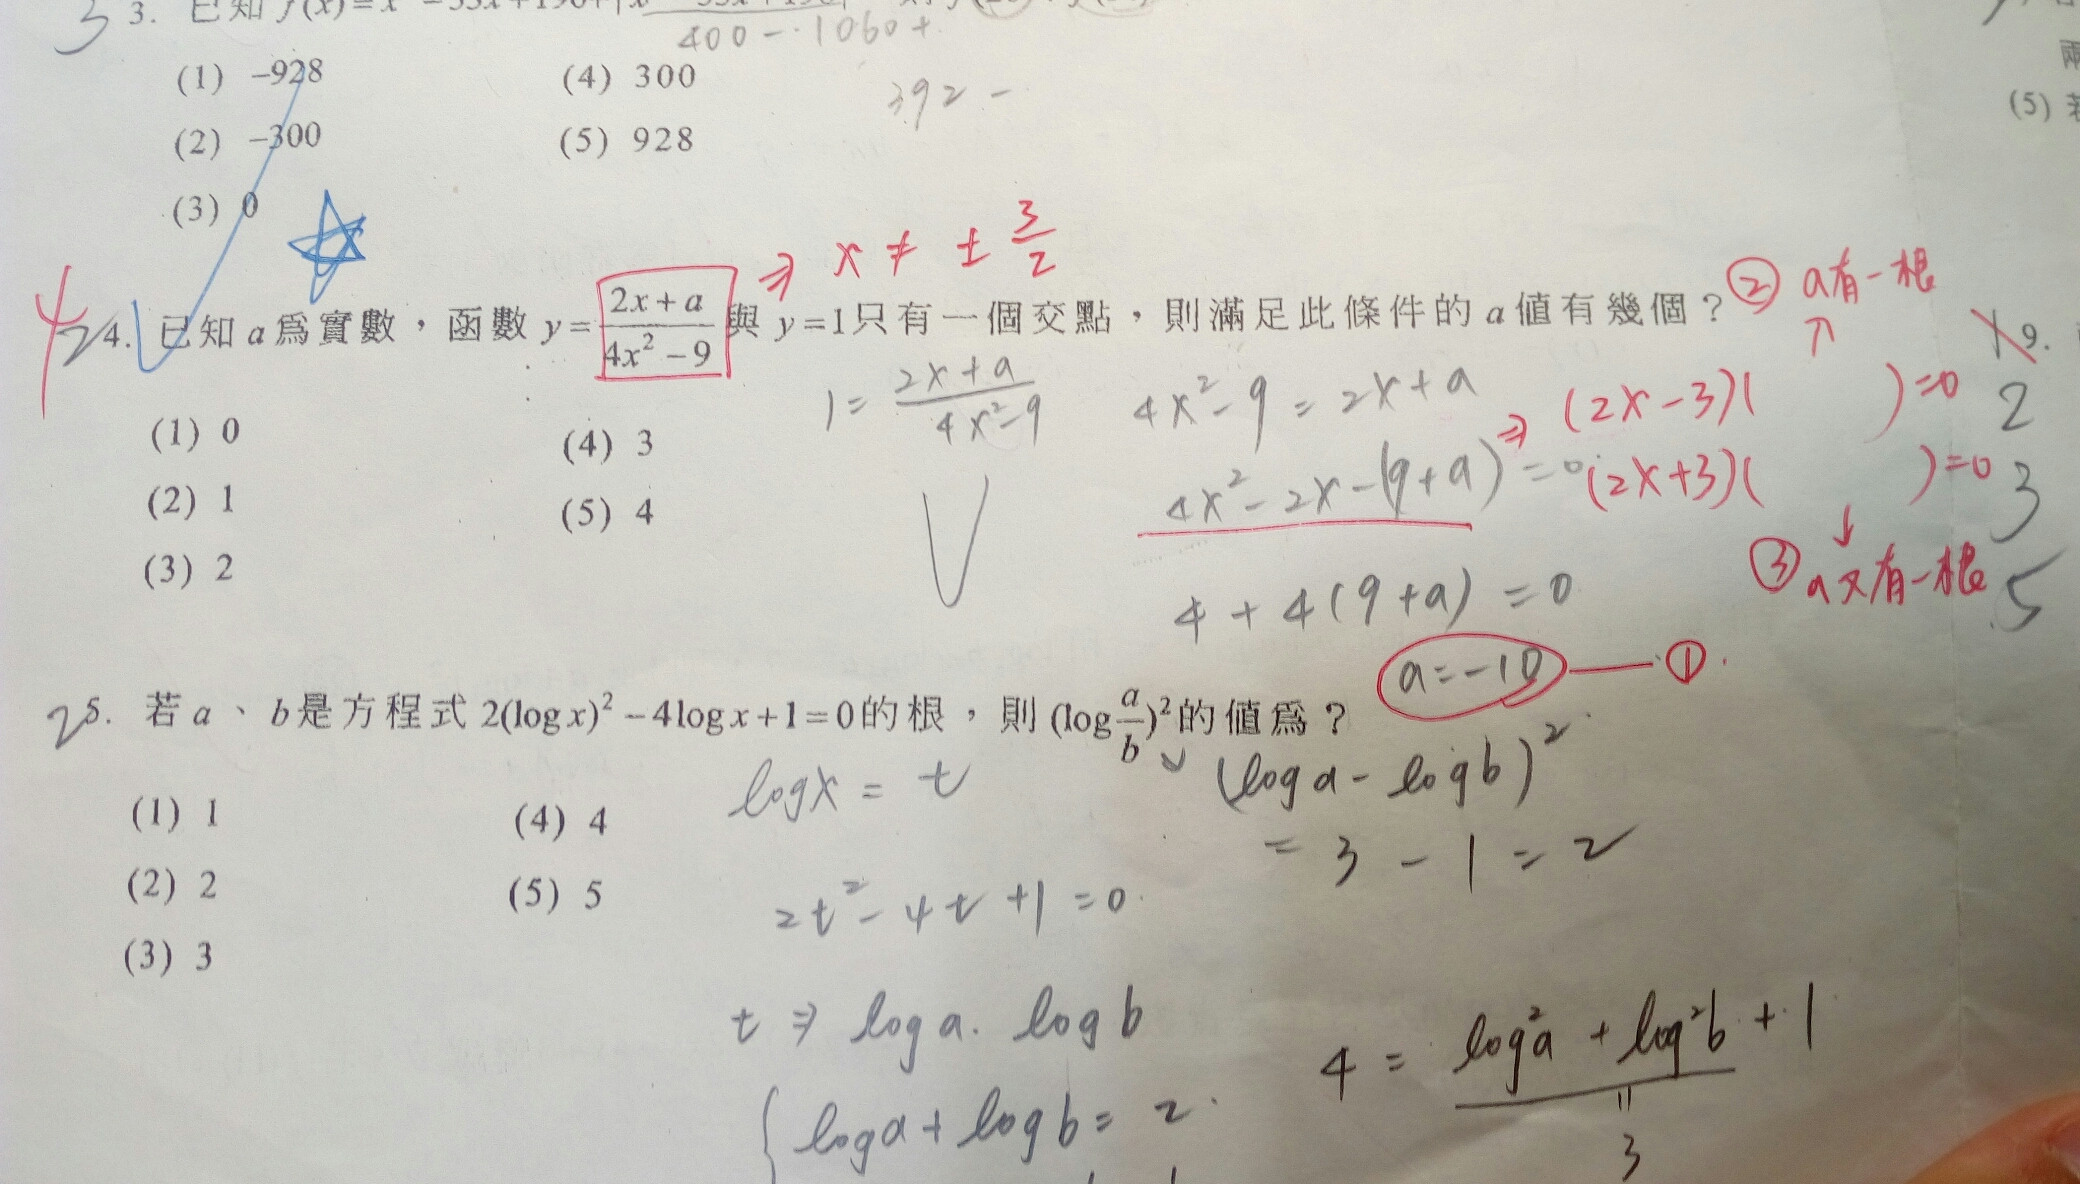 3. 已知
400 - 1060 +
(1) -928
(4) 300
392 -
(2) -300
(5) 928
(3) 0
(5)
⇒ x ≠ ± 3/2
② a有一根
4. 已知 a 為實數，函數 y = (2x + a)/(4x² - 9) 與 y = 1 只有一個交點，則滿足此條件的 a 值有幾個？
9.
1 = (2x + a)/(4x² - 9)
4x² - 9 = 2x + a
⇒ (2x - 3)( ) = 0
2
(1) 0
(4) 3
4x² - 2x - (9 + a) = 0
(2x + 3)( ) = 0
3
(2) 1
(5) 4
③ a又有一根
5
(3) 2
4 + 4(9 + a) = 0
a = -10 — ①
5. 若 a、b 是方程式 2(log x)² - 4log x + 1 = 0 的根，則 (log a/b)² 的值為？
log x = t
(log a - log b)²
(1) 1
(4) 4
= 3 - 1 = 2
(2) 2
(5) 5
2t² - 4t + 1 = 0
(3) 3
t ⇒ log a. log b
4 = log²a + log²b + 1
log a + log b = 2
3